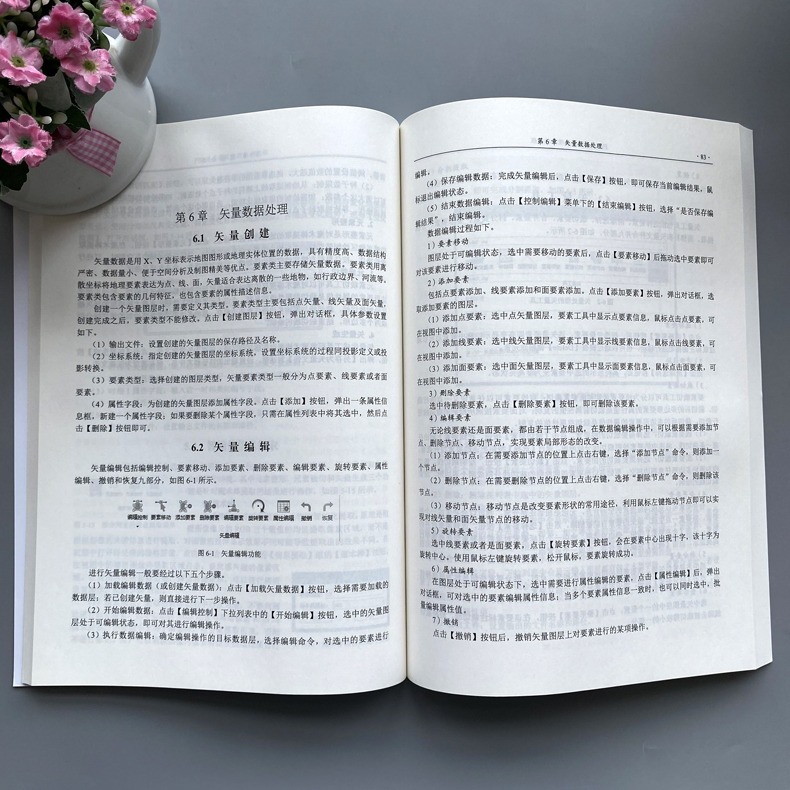 第 6 章　矢量数据处理
6.1　矢 量 创 建
矢量数据是用 X、Y 坐标表示地图图形或地理实体位置的数据，具有精度高、数据结构
严密、数据量小、便于空间分析及制图精美等优点。要素类主要存储矢量数据。要素类用离
散坐标将地理要素表达为点、线、面，矢量适合表达离散的一些地物，如行政边界、河流等。
要素类包含要素的几何特征，也包含要素的属性描述信息。
创建一个矢量图层时，需要定义其类型，要素类型主要包括点矢量、线矢量及面矢量，
创建完成之后，要素类型不能修改。点击【创建图层】按钮，弹出对话框，具体参数设置
如下。
（1）输出文件：设置创建的矢量图层的保存路径及名称。
（2）坐标系统：指定创建的矢量图层的坐标系统，设置坐标系统的过程同投影定义或投
影转换。
（3）要素类型：选择创建的图层类型，矢量要素类型一般分为点要素、线要素或者面
要素。
（4）属性字段：为创建的矢量图层添加属性字段，点击【添加】按钮，弹出一条属性信
息框，新建一个属性字段；如果要删除某个属性字段，只需在属性列表中将其选中，然后点
击【删除】按钮即可。
6.2　矢 量 编 辑
矢量编辑包括编辑控制、要素移动、添加要素、删除要素、编辑要素、旋转要素、属性
编辑、撤销和恢复九部分，如图 6-1 所示。
编辑控制 要素移动 添加要素 删除要素 编辑要素 旋转要素 属性编辑 撤销 恢复
矢量编辑
图 6-1　矢量编辑功能
进行矢量编辑一般要经过以下五个步骤。
（1）加载编辑数据（或创建矢量数据）：点击【加载矢量数据】按钮，选择需要加载的
数据层；若已创建矢量，则直接进行下一步操作。
（2）开始编辑数据：点击【编辑控制】下拉列表中的【开始编辑】按钮，选中的矢量图
层处于可编辑状态，即可对其进行编辑操作。
（3）执行数据编辑：确定编辑操作的目标数据层，选择编辑命令，对选中的要素进行
第 6 章　矢量数据处理
· 83 ·
编辑。
（4）保存编辑数据：完成矢量编辑后，点击【保存】按钮，即可保存当前编辑结果，鼠
标退出编辑状态。
（5）结束数据编辑：点击【控制编辑】菜单下的【结束编辑】按钮，选择“是否保存编
辑结果”，结束编辑。
数据编辑过程如下。
1）要素移动
图层处于可编辑状态，选中需要移动的要素后，点击【要素移动】后拖动选中要素即可
对该要素进行移动。
2）添加要素
包括点要素添加、线要素添加和面要素添加。点击【添加要素】按钮，弹出对话框，选
取添加要素的图层。
（1）添加点要素：选中点矢量图层，要素工具中显示点要素信息，鼠标点击点要素，可
在视图中添加。
（2）添加线要素：选中线矢量图层，要素工具中显示线要素信息，鼠标点击线要素，可
在视图中添加。
（3）添加面要素：选中面矢量图层，要素工具中显示面要素信息，鼠标点击面要素，可
在视图中添加。
3）删除要素
选中待删除要素，点击【删除要素】按钮，即可删除该要素。
4）编辑要素
无论线要素还是面要素，都由若干节点组成，在数据编辑操作中，可以根据需要添加节
点、删除节点、移动节点，实现要素局部形态的改变。
（1）添加节点：在需要添加节点的位置上点击右键，选择“添加节点”命令，则添加一
个节点。
（2）删除节点：在需要删除节点的位置上点击右键，选择“删除节点”命令，则删除该
节点。
（3）移动节点：移动节点是改变要素形状的常用途径，利用鼠标左键拖动节点即可以实
现对线矢量和面矢量节点的移动。
5）旋转要素
选中线要素或者是面要素，点击【旋转要素】按钮，会在要素中心出现十字，该十字为
旋转中心，使用鼠标左键旋转要素，松开鼠标，要素旋转成功。
6）属性编辑
在图层处于可编辑状态下，选中需要进行属性编辑的要素，点击【属性编辑】后，弹出
对话框，可对选中的要素编辑属性信息；当多个要素属性信息一致时，也可以同时选中，批
量编辑属性值。
7）撤销
点击【撤销】按钮后，撤销矢量图层上对要素进行的某项操作。